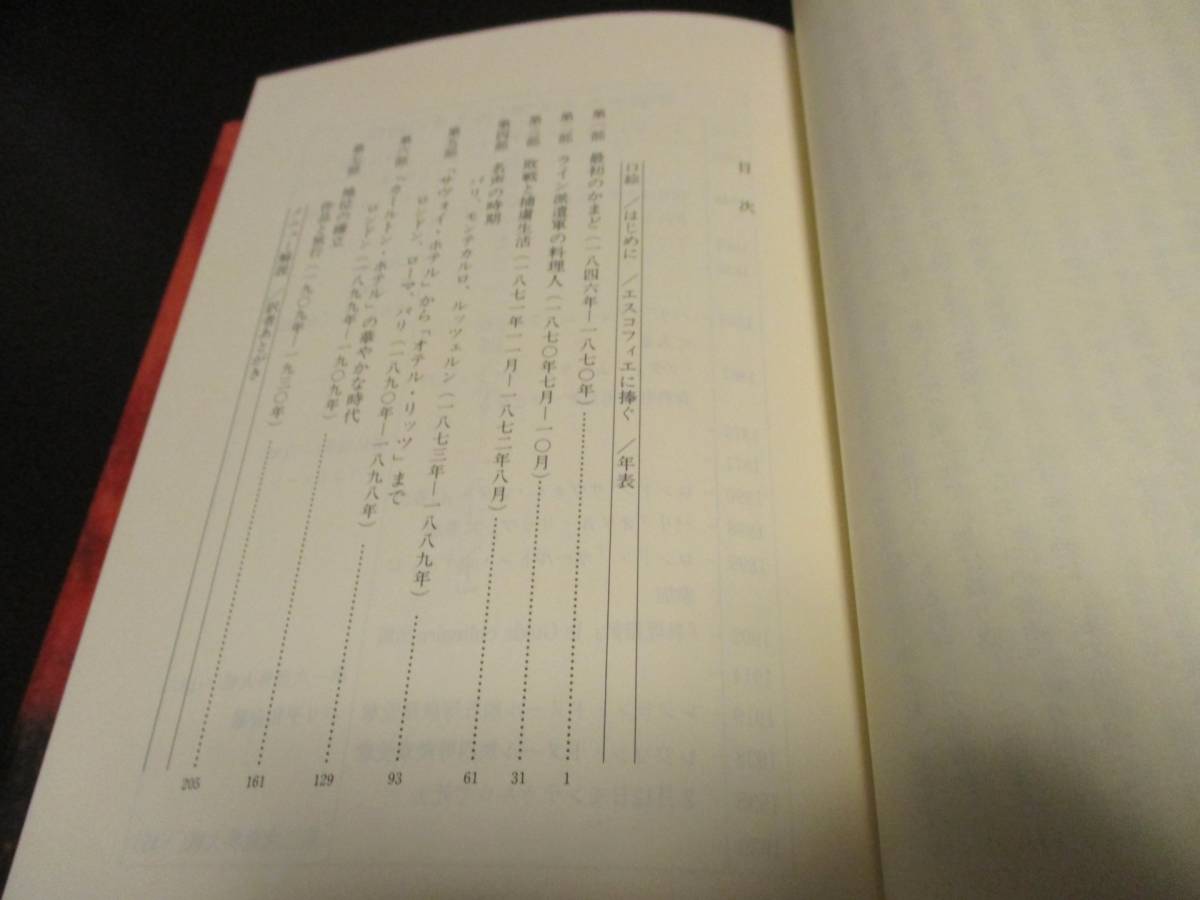 目次
口絵／はじめに／エスコフィエに捧ぐ／年表
第一部 最初のかまど（一八四六年―一八七〇年）……1
第二部 ライン派遣軍の料理人（一八七〇年七月―一〇月）……31
第三部 敗戦と捕虜生活（一八七一年一一月―一八七二年八月）……61
第四部 名声の時期
パリ、モンテカルロ、ルッツェルン（一八七三年―一八八九年）……93
第五部 「サヴォイ・ホテル」から「オテル・リッツ」まで
ロンドン、ローマ、パリ（一八九〇年―一八九八年）……129
第六部 「カールトン・ホテル」の華やかな時代
ロンドン（一八九九年―一九〇九年）……161
第七部 地位の確立
作品と旅行（一九〇九年―一九三〇年）……205
メニュー解説／訳者あとがき